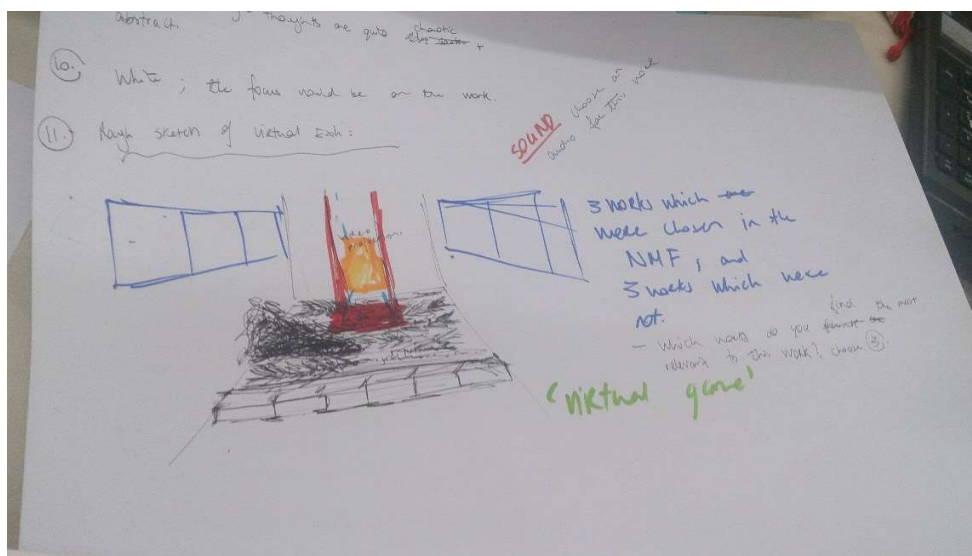 abstract.
thoughts are quite chaotic
10.
White ; the focus would be on the work.
11.
Rough sketch of virtual Exh:
SOUND choose an
audio for this work
3 works which
were chosen in the
NMF, and
3 works which were
not.
- Which works do you find the most
relevant to this work?, choose 3.
'virtual game'